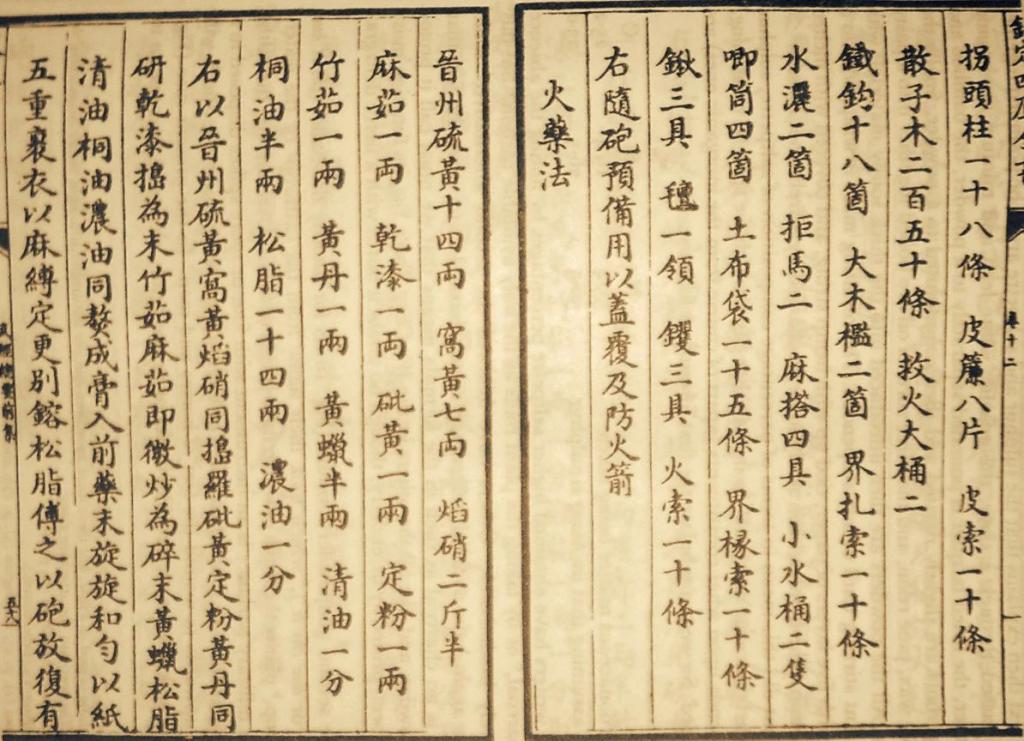 欽定四庫全書
卷十二
拐頭柱一十八條 皮簾八片 皮索一十條
散子木二百五十條 救火大桶二
鐵鈎十八箇 大木檻二箇 界扎索一十條
水濃二箇 拒馬二 麻搭四具 小水桶二隻
唧筒四箇 土布袋一十五條 界椽索一十條
鍬三具 氊一領 钁三具 火索一十條
右隨砲預備用以蓋覆及防火箭
火藥法
晉州硫黃十四兩 窩黃七兩 焰硝二斤半
麻茹一兩 乾漆一兩 砒黃一兩 定粉一兩
竹茹一兩 黃丹一兩 黃蠟半兩 清油一分
桐油半兩 松脂一十四兩 濃油一分
右以晉州硫黃窩黃焰硝同搗羅砒黃定粉黃丹同
研乾漆搗為末竹茹麻茹即微炒為碎末黃蠟松脂
清油桐油濃油同熬成膏入前藥末旋旋和勻以紙
五重裹衣以麻縛定更別鎔松脂傅之以砲放復有
武經總要前集
五十八